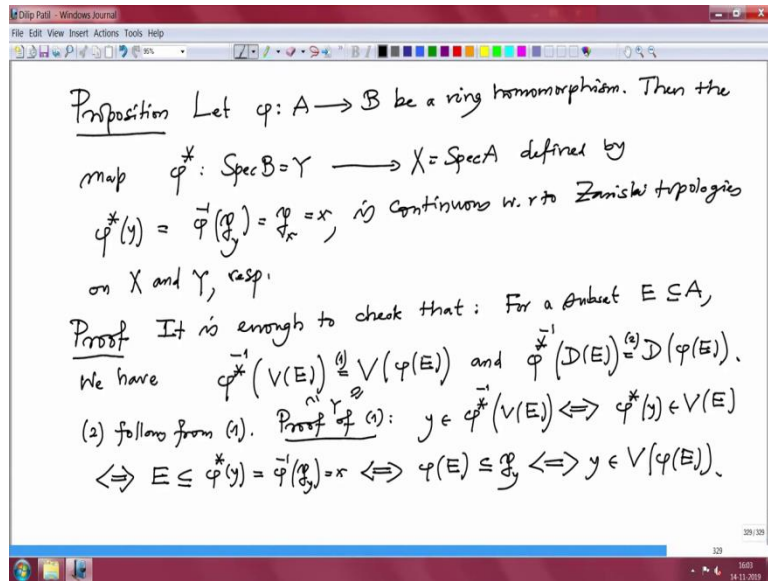 Dilip Patil - Windows Journal
File Edit View Insert Actions Tools Help
95%
Proposition Let φ: A → B be a ring homomorphism. Then the
map φ*: Spec B = Y → X = Spec A defined by
φ*(y) = φ⁻¹(𝔭_y) = 𝔭_x = x, is continuous w.r.to Zariski topologies
on X and Y, resp.
Proof It is enough to check that: For a subset E ⊆ A,
We have φ*⁻¹(V(E)) =⁽¹⁾ V(φ(E)) and φ*⁻¹(D(E)) =⁽²⁾ D(φ(E)).
(2) follows from (1). Proof of (1): y ∈ φ*⁻¹(V(E)) ⟺ φ*(y) ∈ V(E)
⟺ E ⊆ φ*(y) = φ⁻¹(𝔭_y) = x ⟺ φ(E) ⊆ 𝔭_y ⟺ y ∈ V(φ(E)).
329/329
329
16:03
14-11-2019